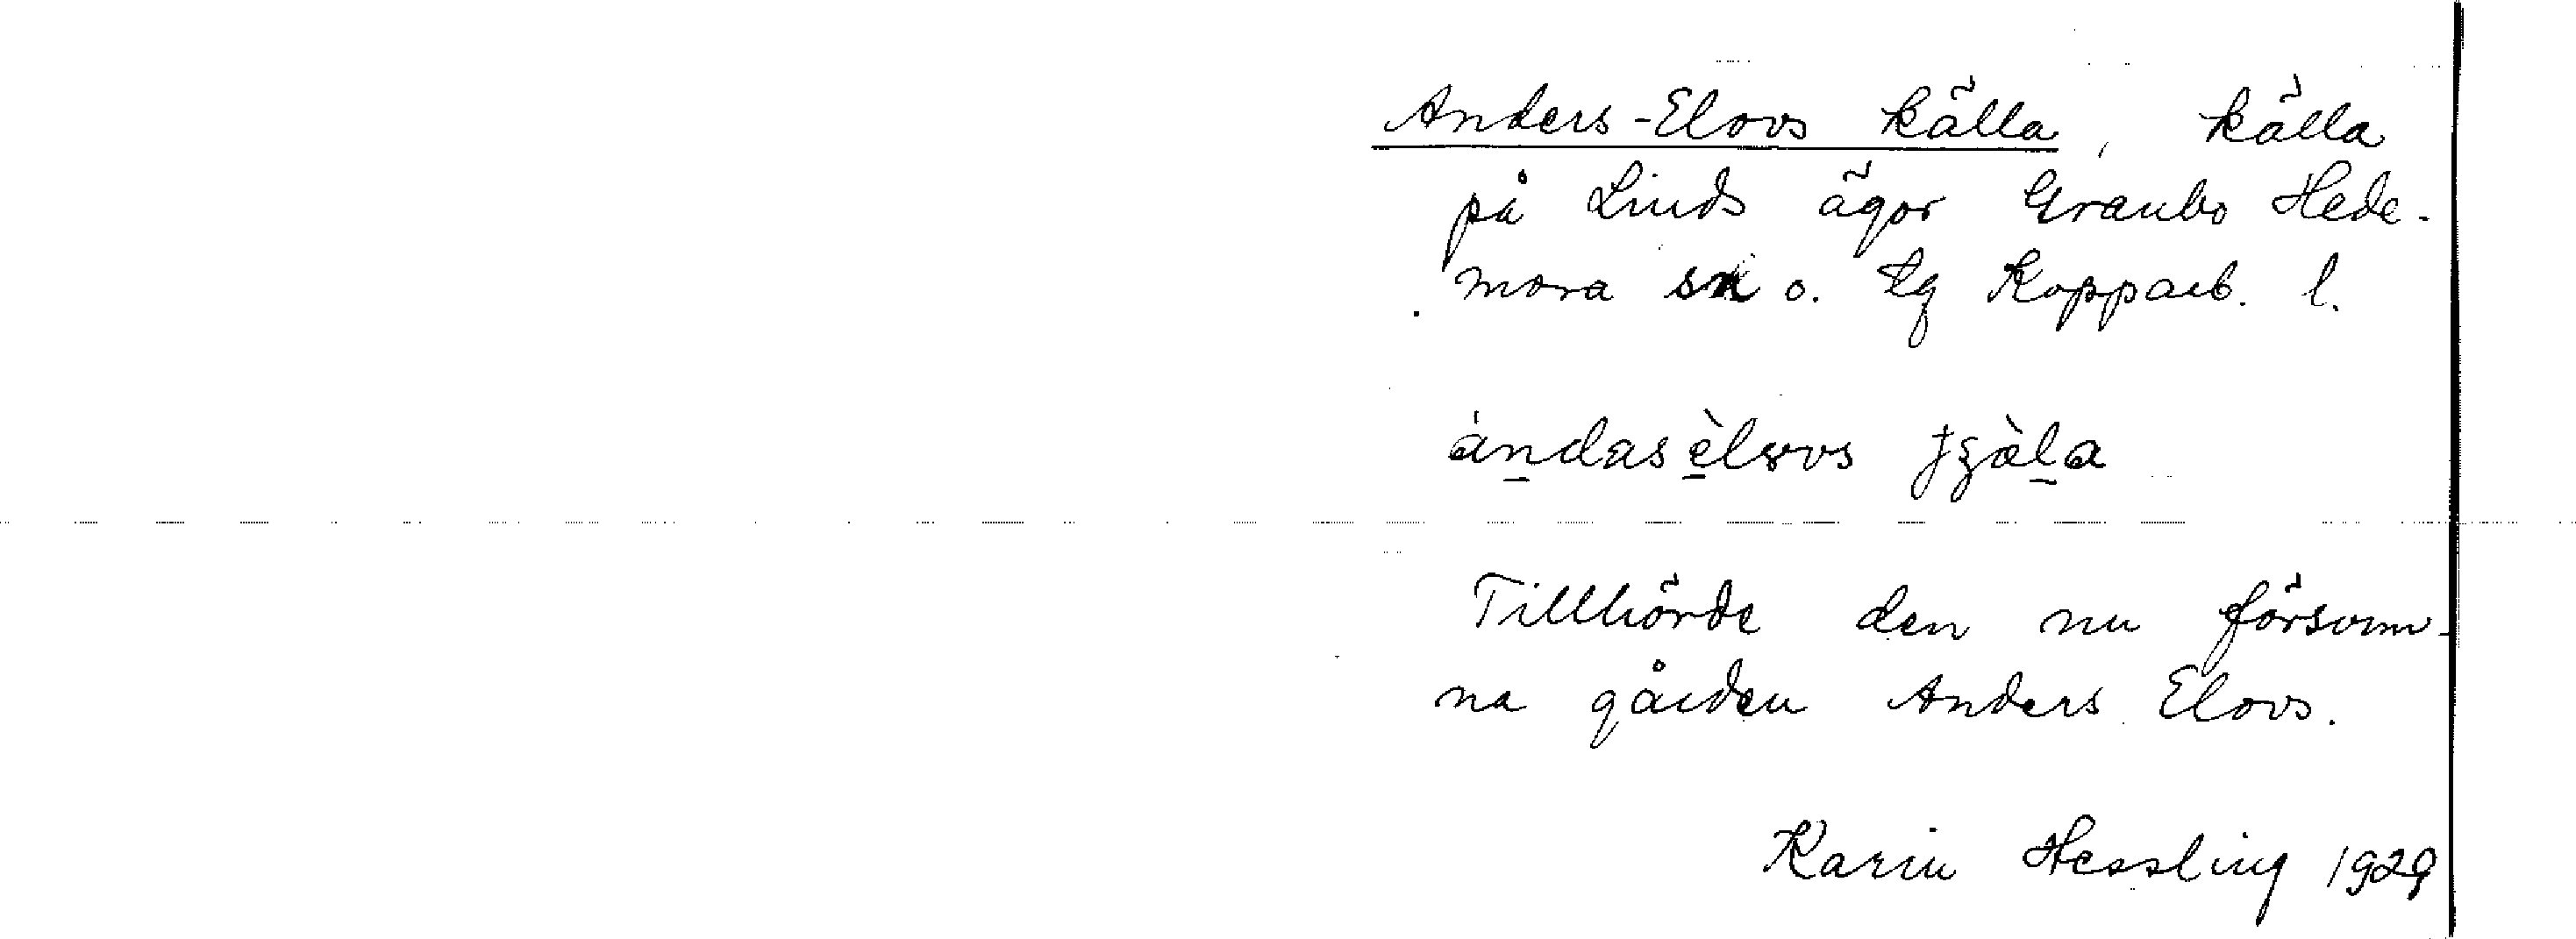 Anders-Elovs källa, källa
på Linds ägor Graubo Hede-
mora sn o. tg Kopparb. l.
àndasèlovs
Tillhörde den nu försvun-
na gården Anders Elovs.
Karin Hessling 1929